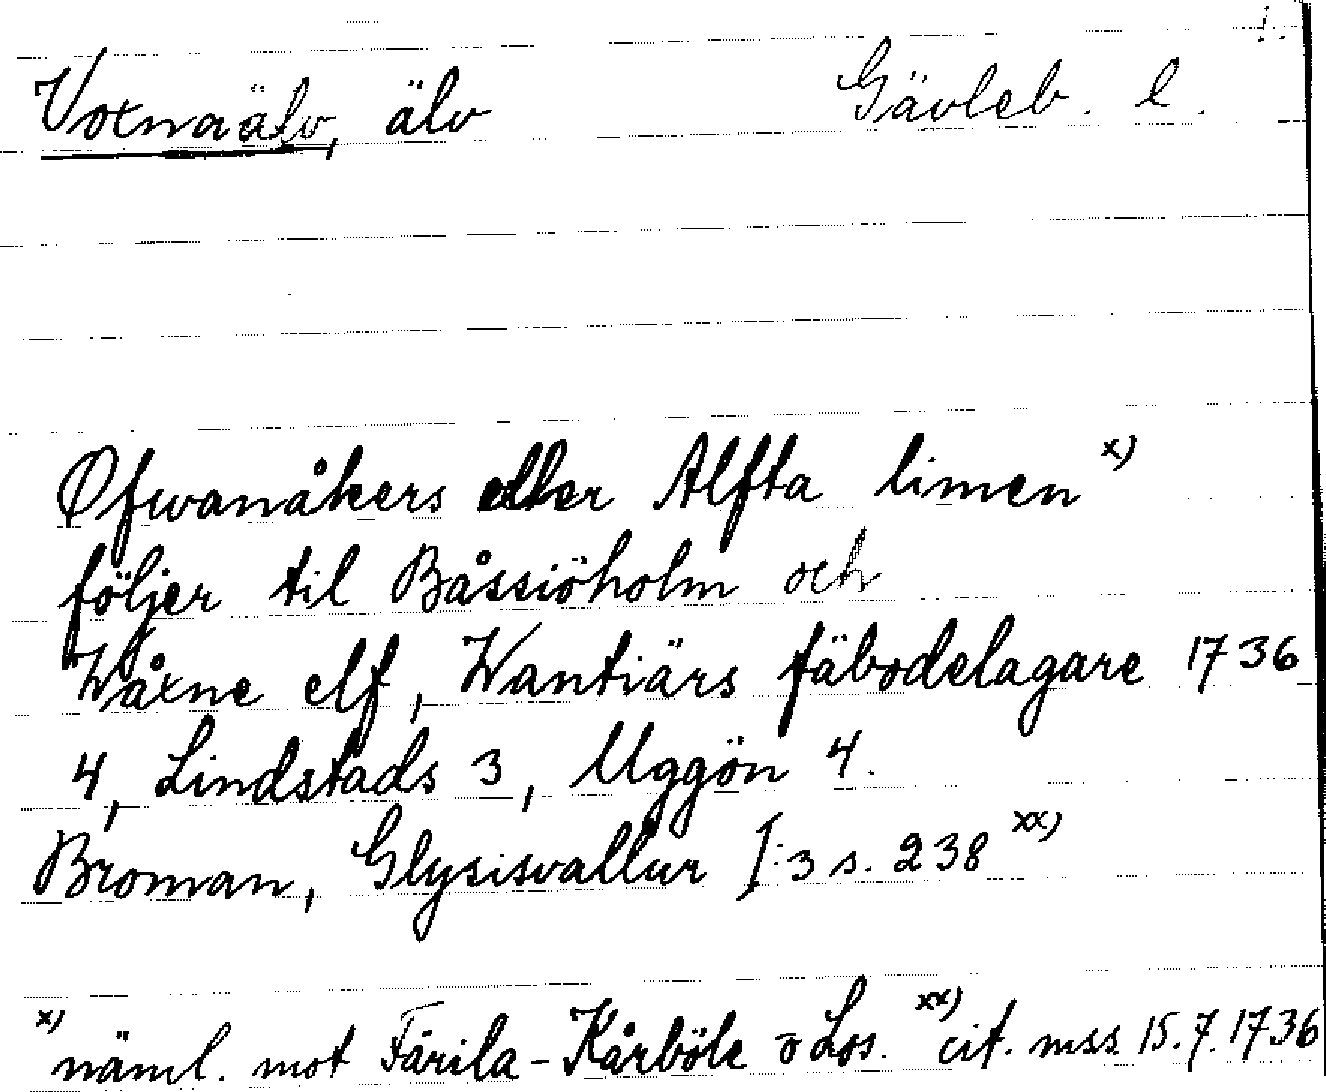 Voxnaälv, älv Gävleb. l.
Øfwanåkers eller Alfta limen x)
följer til Båssiöholm och
Wåxne elf, Wantiärs fäbodelagare 1736
4, Lindstads 3, Uggön 4.
Broman, Glysisvallur I:3 s. 238 xx)
x) näml. mot Färila-Kårböle o Los. xx) cit. mss. 15.7.1736